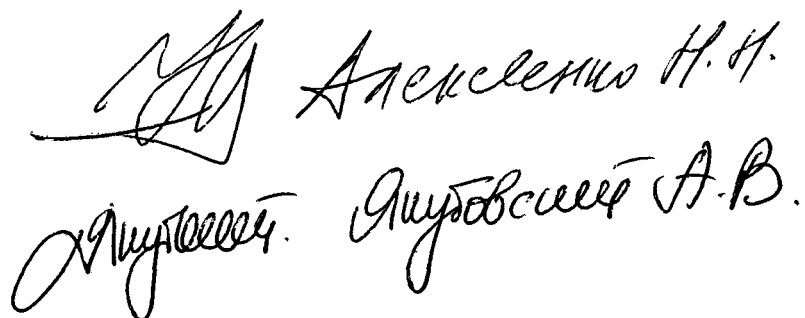 Алексеенко Н.Н.
Якубовский А.В.